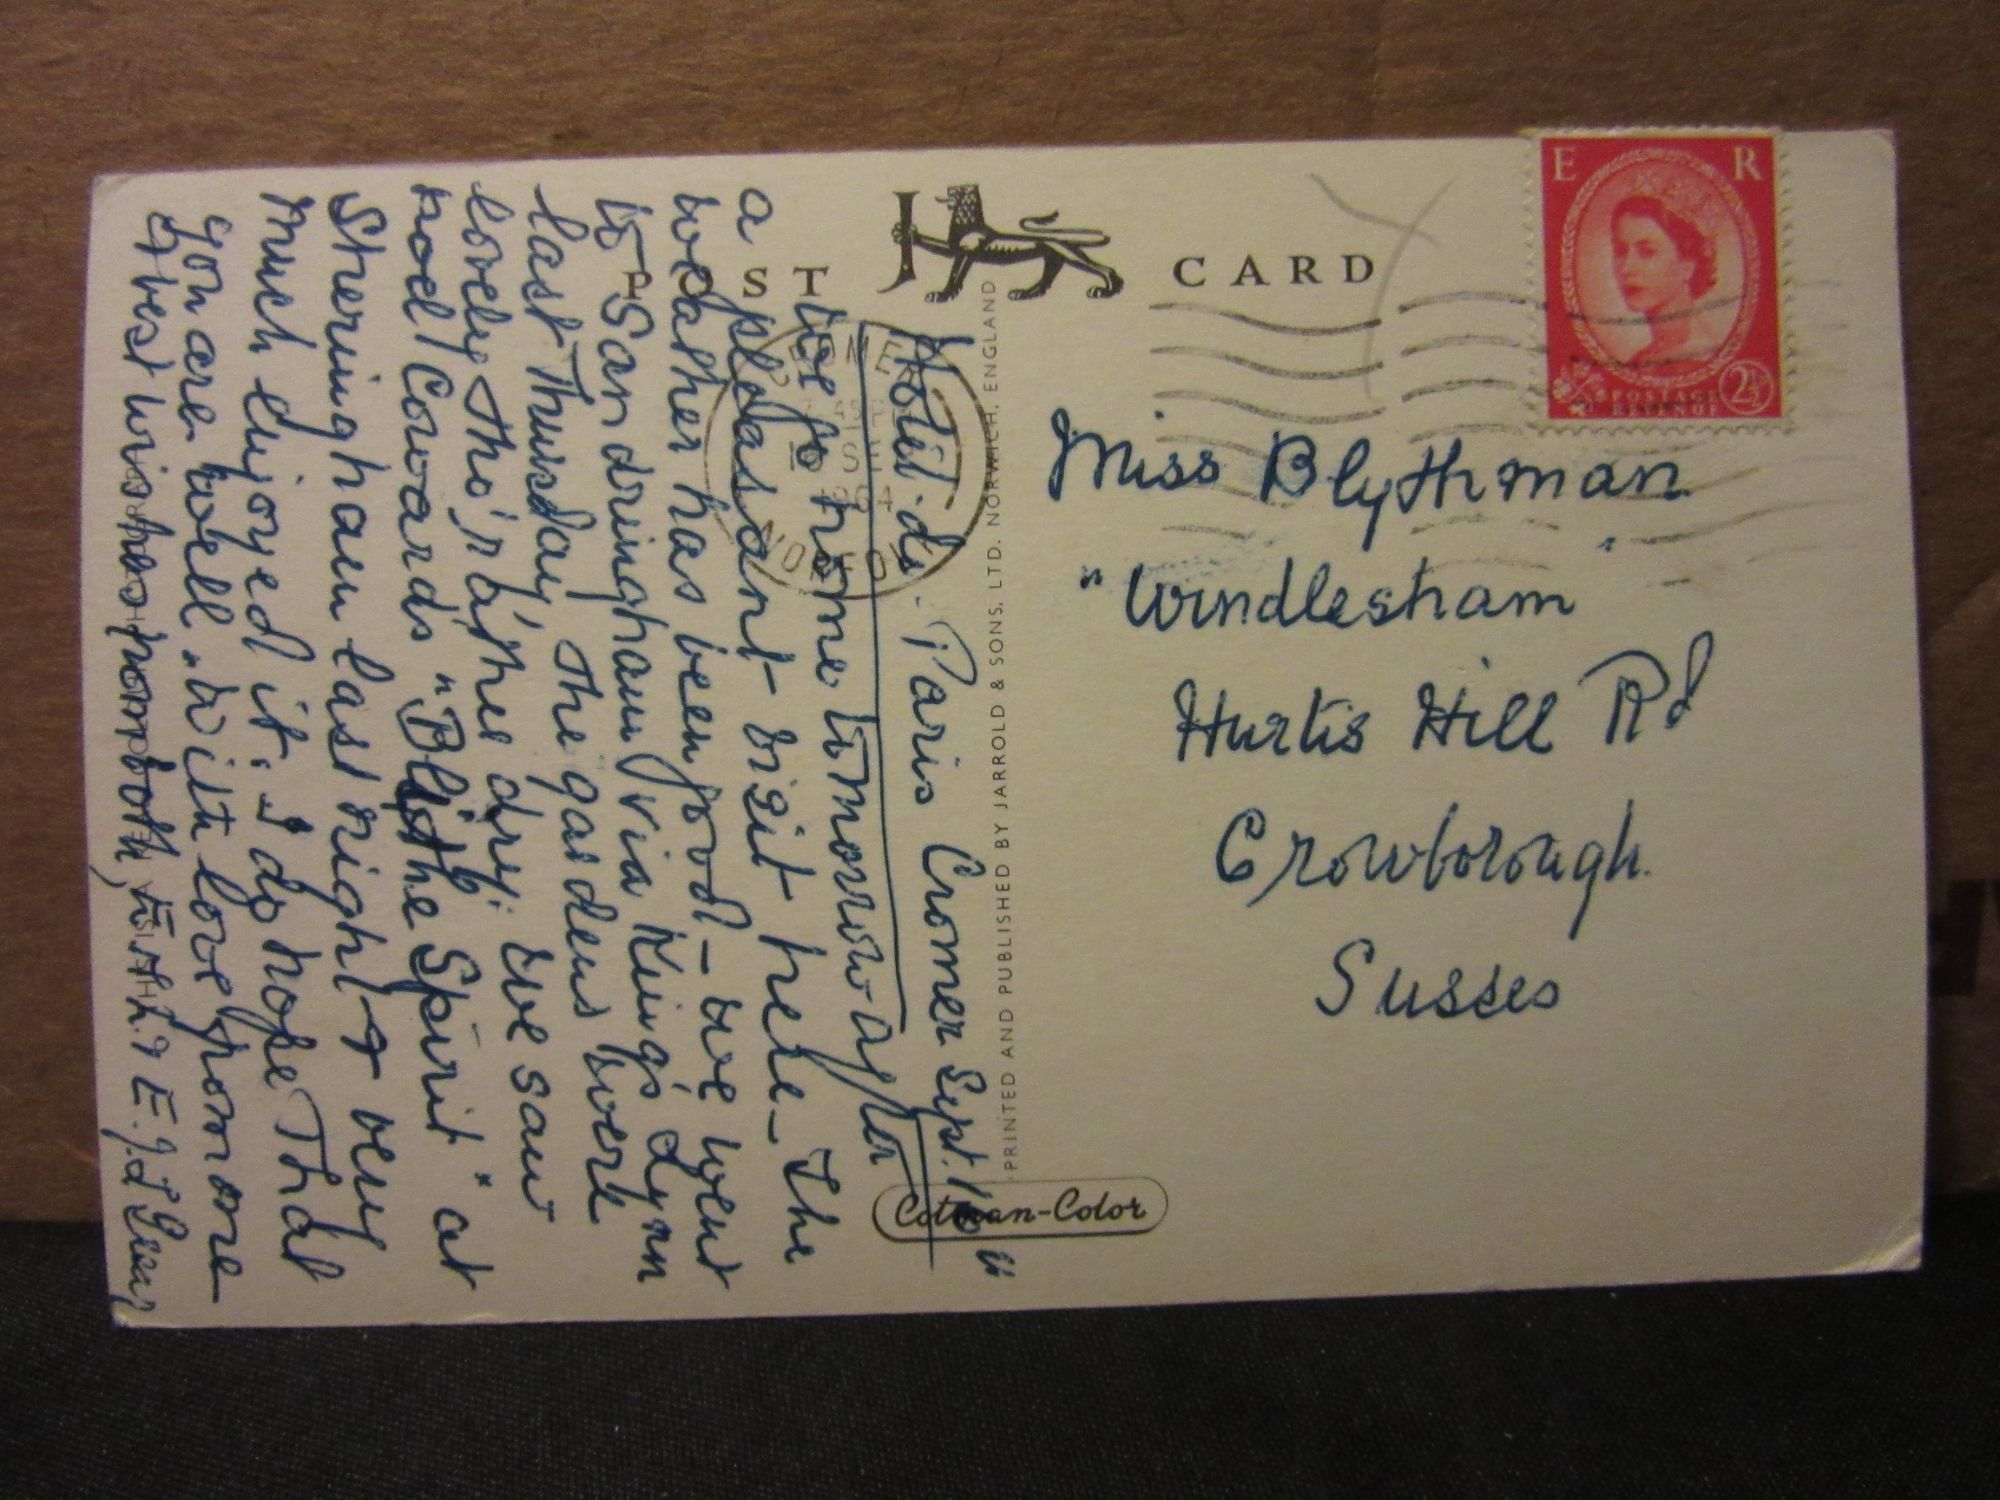 POST CARD
E R
POSTAGE
REVENUE
2½
CROMER
NORFOLK
Hotel de Paris Cromer Sept. 10th
We go home tomorrow after
a pleasant visit here - The
weather has been good - we went
to Sandringham via King's Lynn
last Thursday, the gardens were
lovely tho' rather dry: we saw
Noel Coward's "Blithe Spirit" at
Sheringham last night & very
much enjoyed it. I do hope that
you are well. With love from me
& best wishes from both, E.
Miss Blythman
"Windlesham"
Hurtis Hill Rd
Crowborough.
Sussex
PRINTED AND PUBLISHED BY JARROLD & SONS, LTD. NORWICH, ENGLAND
Cotman-Color